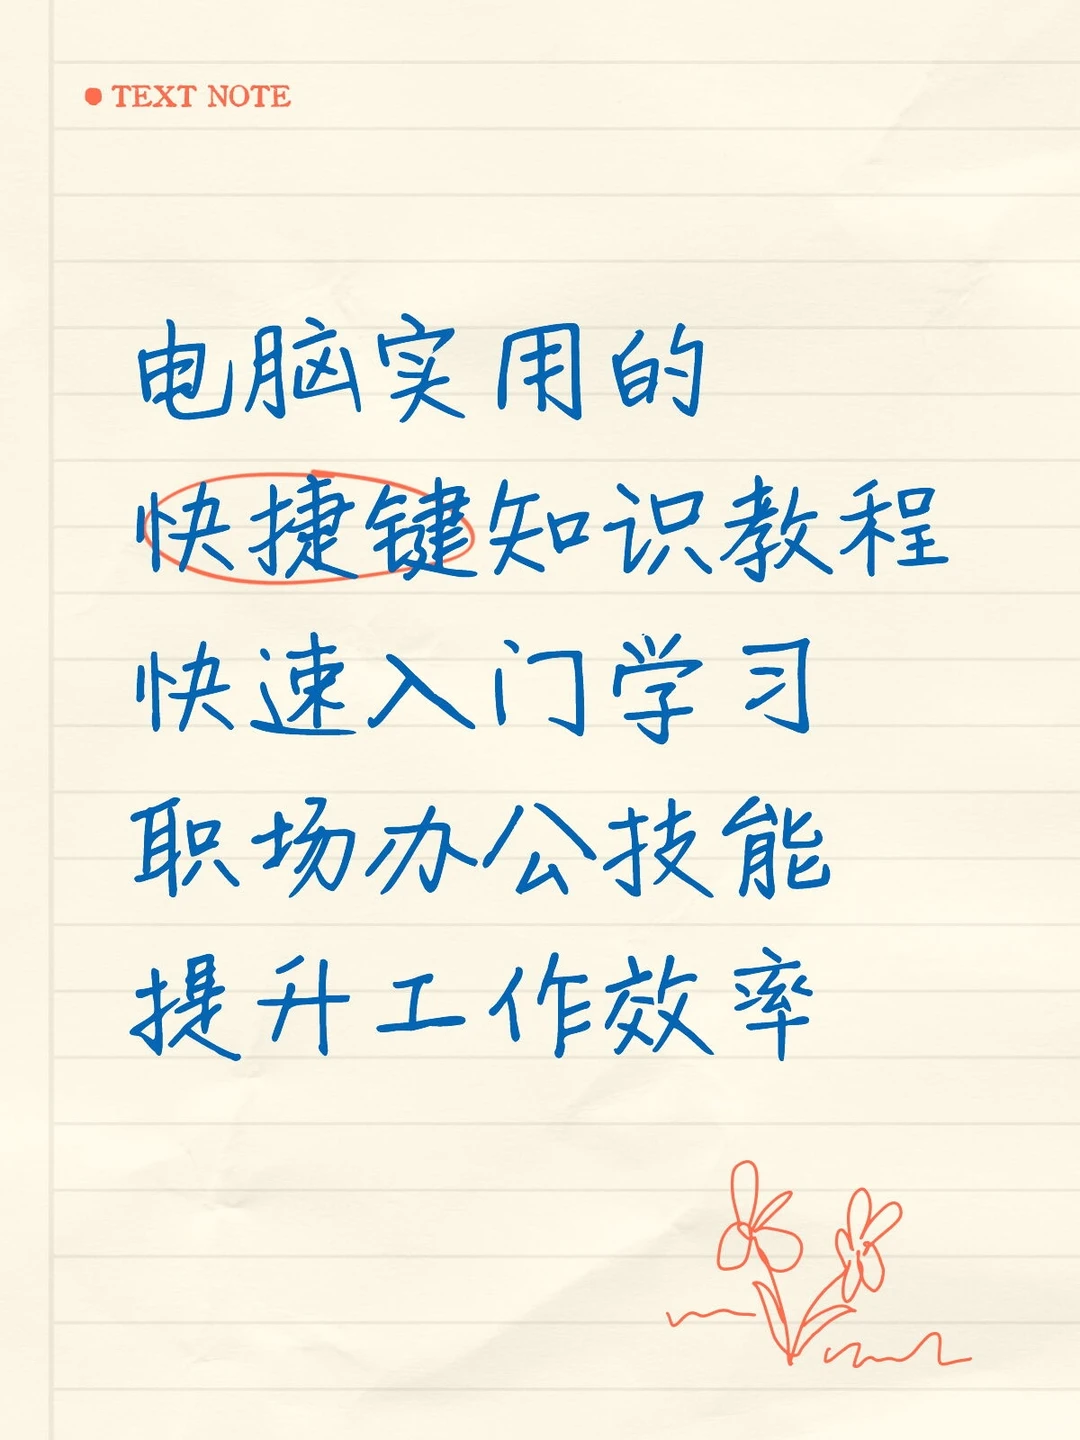 TEXT NOTE
电脑实用的
快捷键知识教程
快速入门学习
职场办公技能
提升工作效率